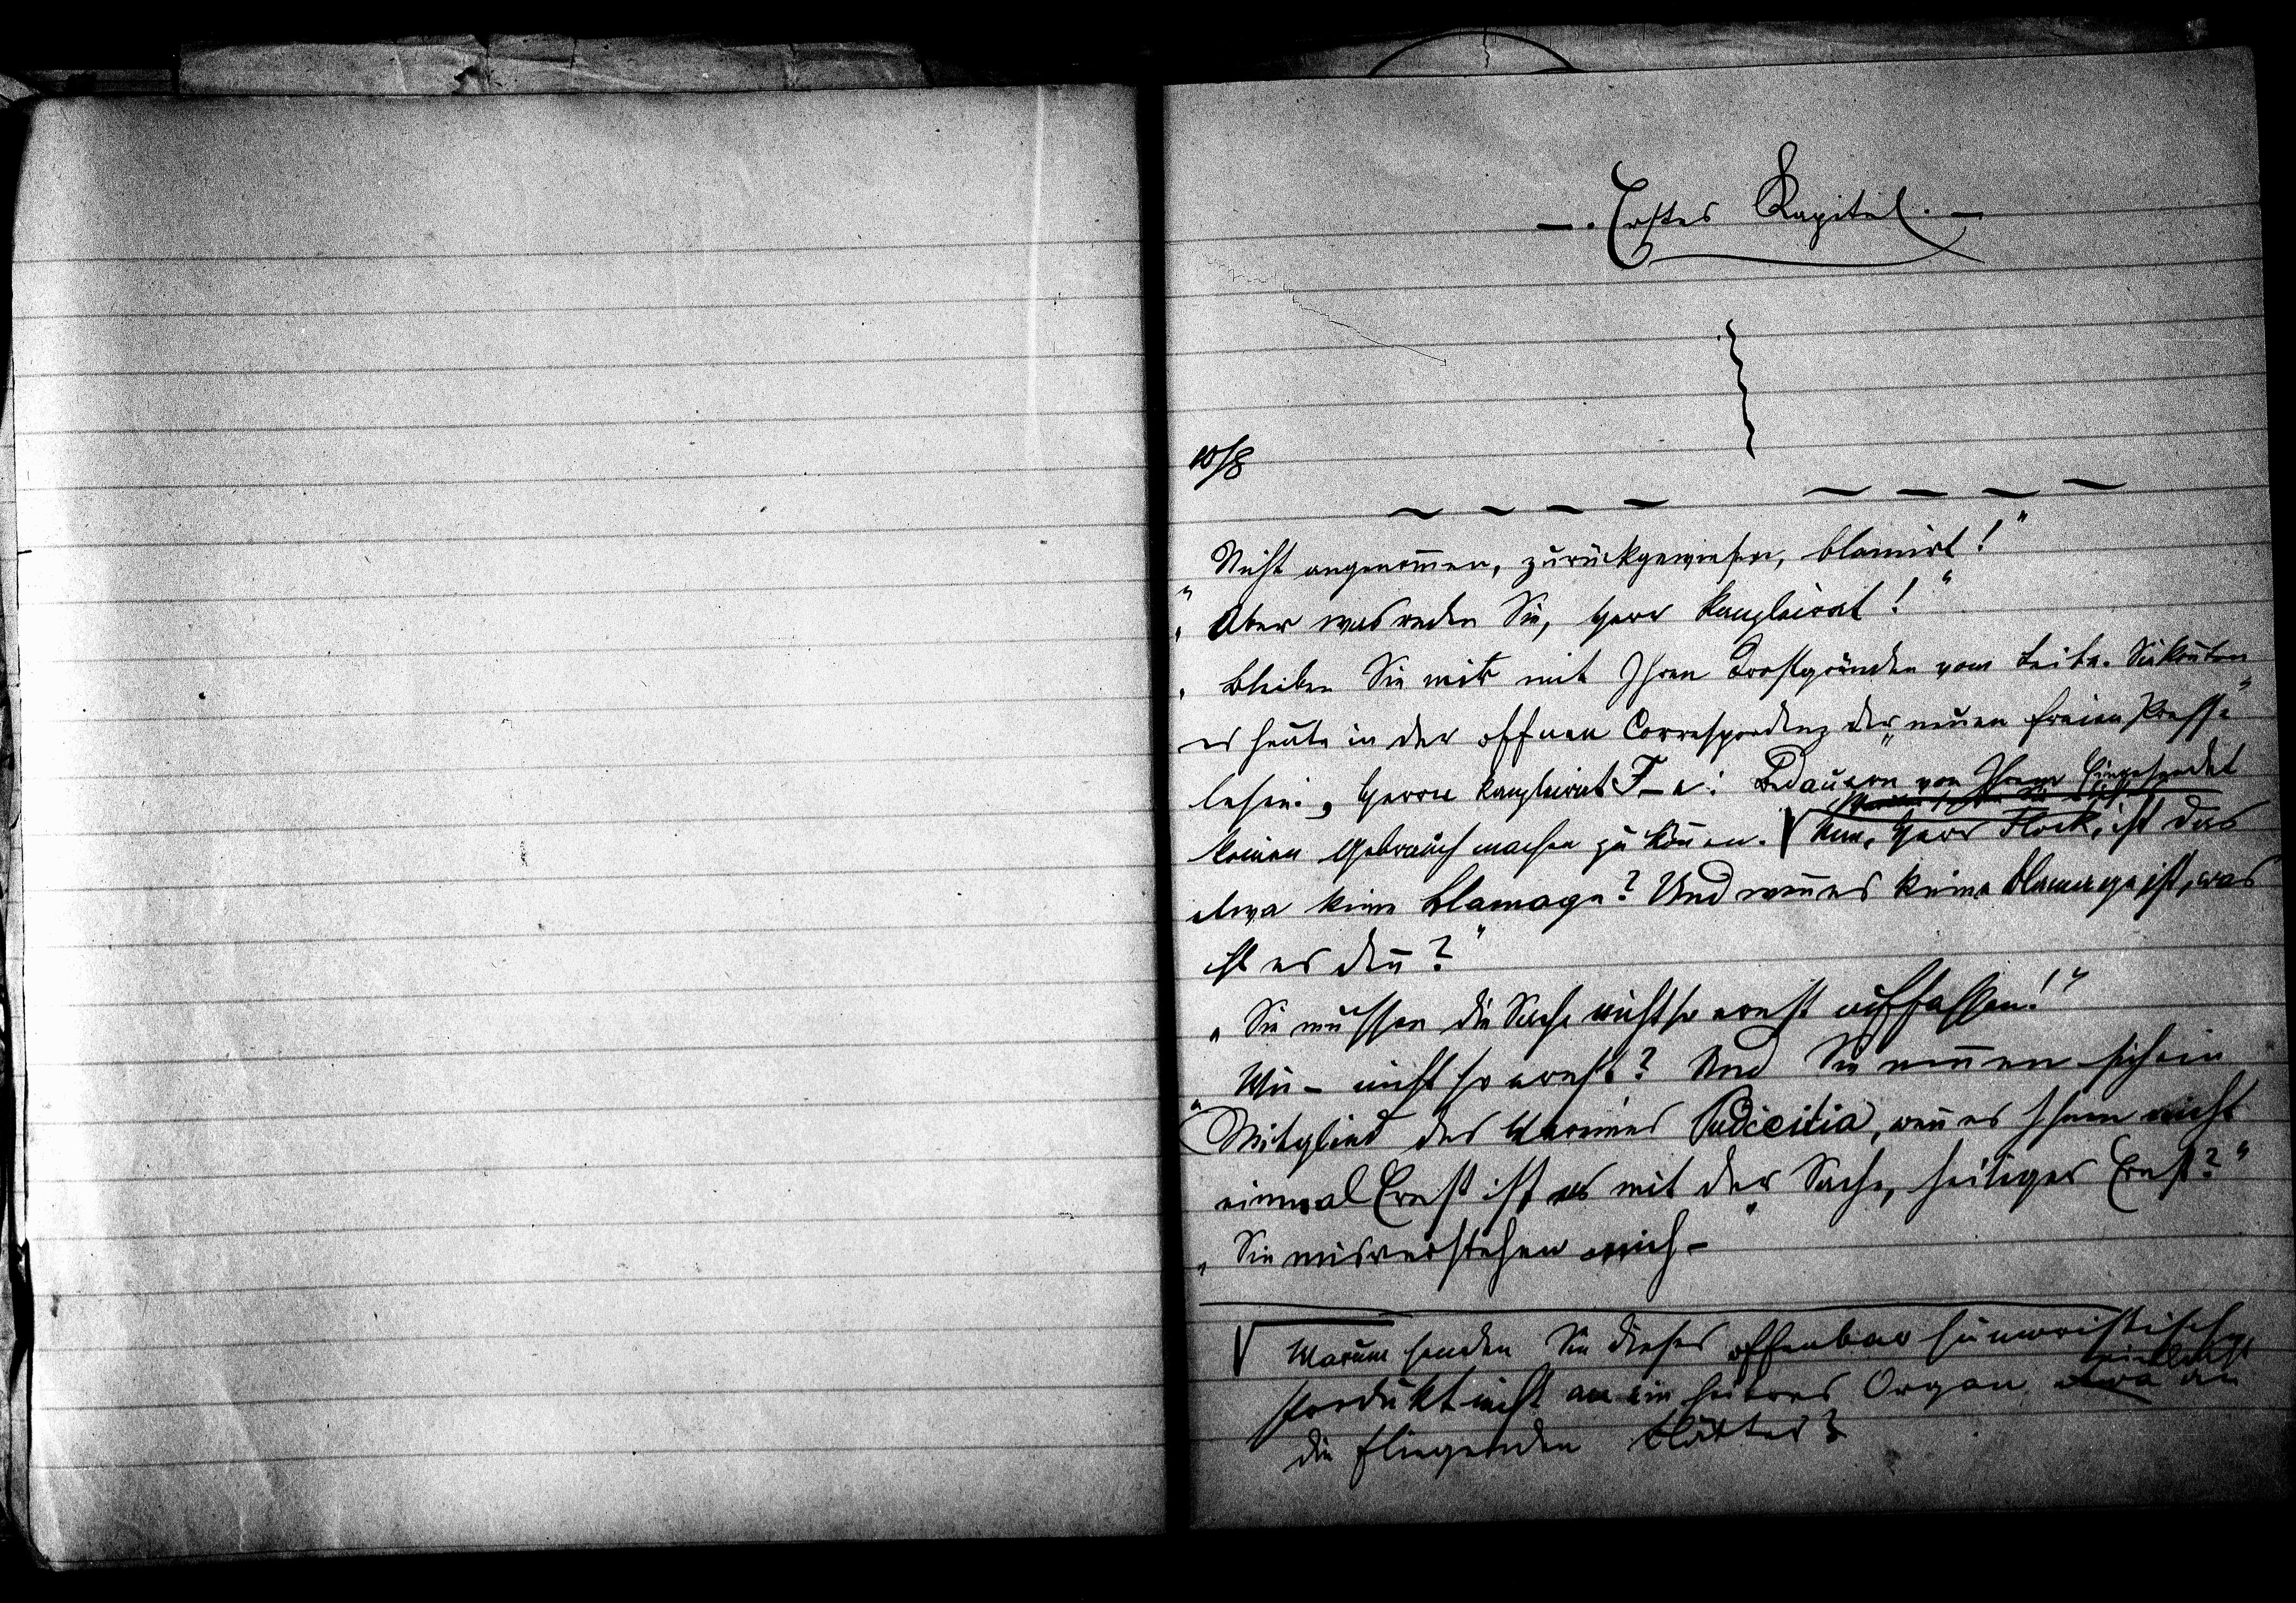 —. Erstes Kapitel. —
10/8
Nicht angenom̄en, zurückgewiesen, blamirt!"
"Aber was reden Sie, Herr Kanzleirat!"
"Bleiben Sie mir mit Ihren Trostgründen vom Leibe. Sie kön̄ten
es heute in der offnen Correspondenz der „neuen freien Presse"
lesen: „Herrn Kanzleirat F–e: Bedauern von Ihrem Eingesendet
keinen Gebrauch machen zu kön̄en. √ Nun, Herr Flock, ist das
etwa keine Blamage? Und wen̄ es keine Blamage ist, was
ist es den̄?"
„Sie müssen die Sache nicht so ernst auffassen!"
„Wie – nicht so ernst? Und Sie nen̄en sich ein
Mitglied des Vereines Pudicitia, wen̄ es Ihnen nicht
einmal Ernst ist es mit der Sache, heiliger Ernst?"
„Sie misverstehen mich –"
√ Warum senden Sie dieses offenbar humoristische
Produkt nicht an ein heiteres Organ, etwa vielleicht an
die fliegenden Blätter?